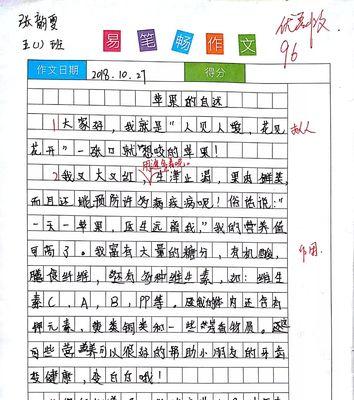 张韵夏
五(1)班
易笔畅作文
优
96
作文日期 2018.10.27 得分
苹果的自述
1 大家好，我就是"人见人爱，花见
花开"一张口就想咬的苹果！
拟人
2 我又大又红，生津止渴，果肉鲜美，
而且还能预防许多疾病呢！俗话说："
一天一苹果，医生远离我"我的营养值
可高了。我富有大量的糖分，有机酸，
作用
膳食纤维，还有多种维生素，如：维生
素C，A，B，PP等。我的体内还含有
钾元素，黄类铜类和一些营养物质。这
些营养可以很好的帮助小朋友的牙齿
变健康，变白白哦！